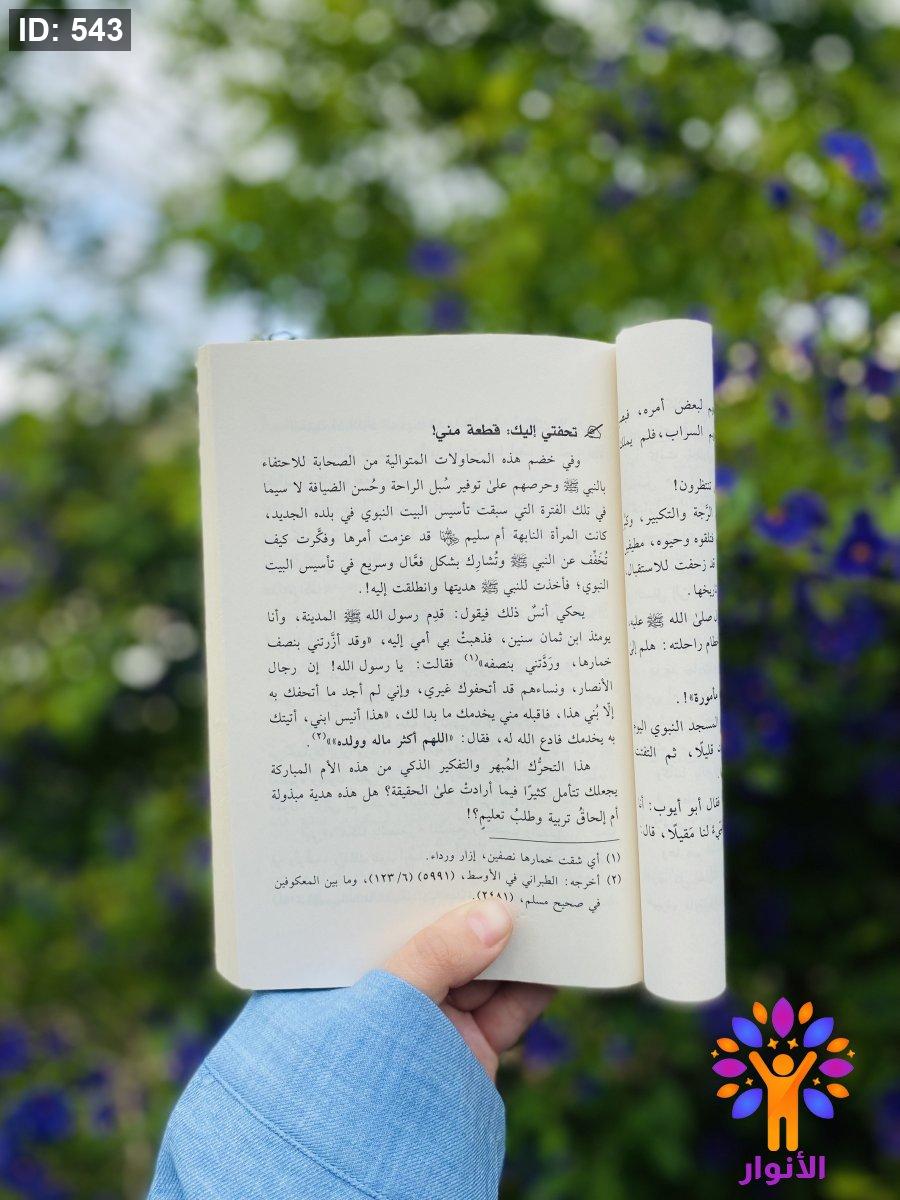 ID: 543
تحفتي إليك: قطعة مني!
وفي خضم هذه المحاولات المتوالية من الصحابة للاحتفاء
بالنبي ﷺ وحرصهم علىٰ توفير سُبل الراحة وحُسن الضيافة لا سيما
في تلك الفترة التي سبقت تأسيس البيت النبوي في بلده الجديد،
كانت المرأة النابهة أم سليم قد عزمت أمرها وفكَّرت كيف
تُخَفِّف عن النبي ﷺ وتُشارِك بشكل فعَّال وسريع في تأسيس البيت
النبوي؛ فأخذت للنبي ﷺ هديتها وانطلقت إليه!.
يحكي أنسٌ ذلك فيقول: قدِم رسول الله ﷺ المدينة، وأنا
يومئذ ابن ثمان سنين، فذهبتْ بي أمي إليه، «وقد أزَّرتني بنصف
خمارها، وردَّتني بنصفه»(١) فقالت: يا رسول الله! إن رجال
الأنصار، ونساءهم قد أتحفوك غيري، وإني لم أجد ما أتحفك به
إلّا بُني هذا، فاقبله مني يخدمك ما بدا لك، «هذا أنيس ابني، أتيتك
به يخدمك فادع الله له، فقال: «اللهم أكثر ماله وولده»»(٢).
هذا التحرُّك المُبهر والتفكير الذكي من هذه الأم المباركة
يجعلك تتأمل كثيرًا فيما أرادتْ علىٰ الحقيقة؟ هل هذه هدية مبذولة
أم إلحاقُ تربية وطلبُ تعليمٍ؟!
(١) أي شقت خمارها نصفين، إزار ورداء.
(٢) أخرجه: الطبراني في الأوسط، (٥٩٩١) (٦/ ١٢٣)، وما بين المعكوفين
في صحيح مسلم، (٢٤٨١).
لبعض أمره،
السراب، فلم
تنتظرون!
والتكبير،
فتلقوه وحيوه،
قد زحفت للاستقبال
صلىٰ الله ﷺ
راحلته: هلم
مأمورة»!.
المسجد النبوي
قليلًا، ثم
فقال أبو أيوب:
لنا مَقيلًا، قال:
الأنوار